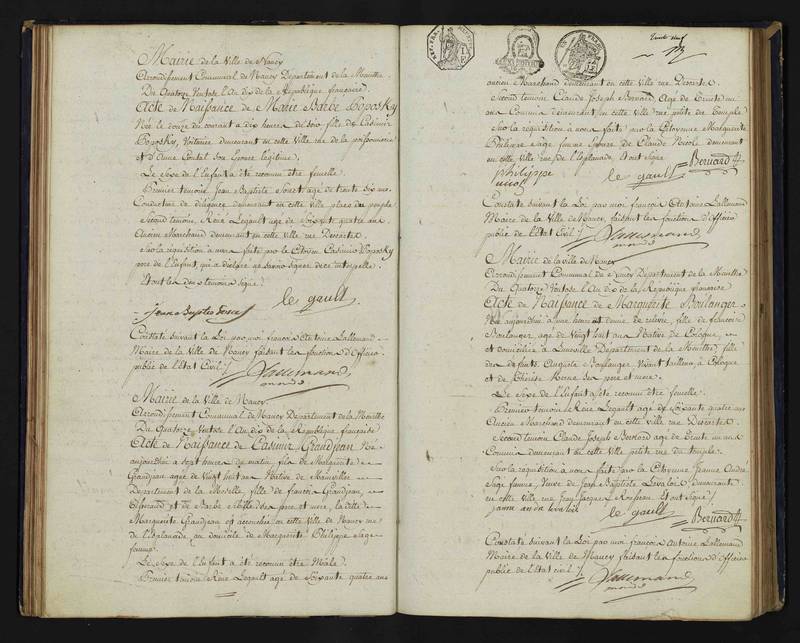 Mairie de la Ville de Nancy
Arrondissement Communal de Nancy Département de la Meurthe
Du Quatorze Ventose l'An dix de la République française
Acte de Naissance de Marie Barbe Poposky
Née le douze du courant a dix heures du soir fille de Casimir
Poposky, Voiturier demeurant en cette Ville rue de la poissonnerie
et d'Anne Contal son Epouse légitime.
Le Sexe de l'Enfant a été reconnu être femelle.
Premier témoin, Jean Baptiste agé de trente six ans
Conducteur de diligence demeurant en cette Ville place du peuple
Second témoin, René Legault agé de Soixante quatre ans
Ancien Marchand demeurant en cette Ville rue Descartes
Sur la réquisition a nous faite par le Citoyen Casimir Poposky
pere de l'Enfant, qui a déclaré ne savoir signer de ce interpellé.
Et ont les deux témoins signé
le gault
Jean Baptiste
Constaté suivant la Loi par moi françois Antoine Lallemand
Maire de la Ville de Nancy faisant les fonctions d'Officier
public de l'Etat Civil
Lallemand
Mairie de la Ville de Nancy
Arrondissement Communal de Nancy Département de la Meurthe
Du Quatorze Ventose l'An dix de la République française
Acte de Naissance de Casimir Grandjean Né
aujourd'hui a sept heures du matin, fils de Marguerite
Grandjean agée de Vingt huit ans Native de
Département de la Moselle, fille de françois Grandjean,
et de Barbe ses pere et mere, la dite
Marguerite Grandjean est accouchée en cette Ville de Nancy rue
de l'Esplanade, au domicile de Marguerite Philippe Sage
femme.
Le Sexe de l'Enfant a été reconnu être Mâle.
Premier témoin René Legault agé de Soixante quatre ans
ancien Marchand demeurant en cette Ville rue Descartes
Second témoin Claude Joseph Bernard Agé de Trente un
ans Commis demeurant en cette Ville petite rue du Temple
Sur la réquisition à nous faite par la Citoyenne Marguerite
Philippe Sage femme Epouse de Claude Nicole demeurant
en cette Ville rue de l'Esplanade. Et ont signé
philippe
le gault Bernard
Constaté suivant la Loi par moi françois Antoine Lallemand
Maire de la Ville de Nancy, faisant les fonctions d'Officier
public de l'Etat Civil
Lallemand
Mairie de la Ville de Nancy
Arrondissement Communal de Nancy Département de la Meurthe
Du Quatorze Ventose l'An dix de la République française
Acte de Naissance de Marguerite Boulanger
Née aujourd'hui a une heure et demie de relevée, fille de françoise
Boulanger, agée de Vingt huit ans Native de Cologne,
et domiciliée à Lunéville Département de la Meurthe, fille
des défunts Auguste Boulanger Vivant tailleur à Cologne
et de Thérèse ses pere et mere.
Le Sexe de l'Enfant a été reconnu être femelle.
Premier témoin René Legault agé de Soixante quatre ans
Ancien Marchand demeurant en cette Ville rue Descartes
Second témoin Claude Joseph Bernard agé de Trente un ans
Commis demeurant en cette Ville petite rue du temple.
Sur la réquisition à nous faite par la Citoyenne Jeanne André
Sage femme, Veuve de Jean Baptiste Levaloir demeurante
en cette Ville rue Jean Jacques Rousseau. Et ont signé
le gault
Bernard
Constaté suivant la Loi par moi francois Antoine Lallemand
Maire de la Ville de Nancy faisant les fonctions d'Officier
public de l'Etat civil
Lallemand